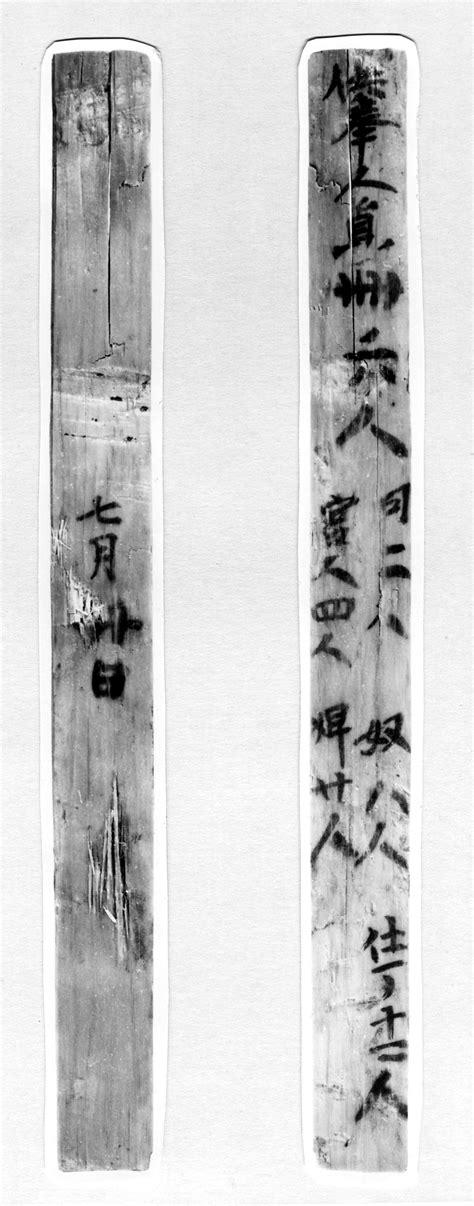 供奉人員卌六人
司二人 奴八人 仕丁十二人
宮人四人 婢廿人
七月廿日